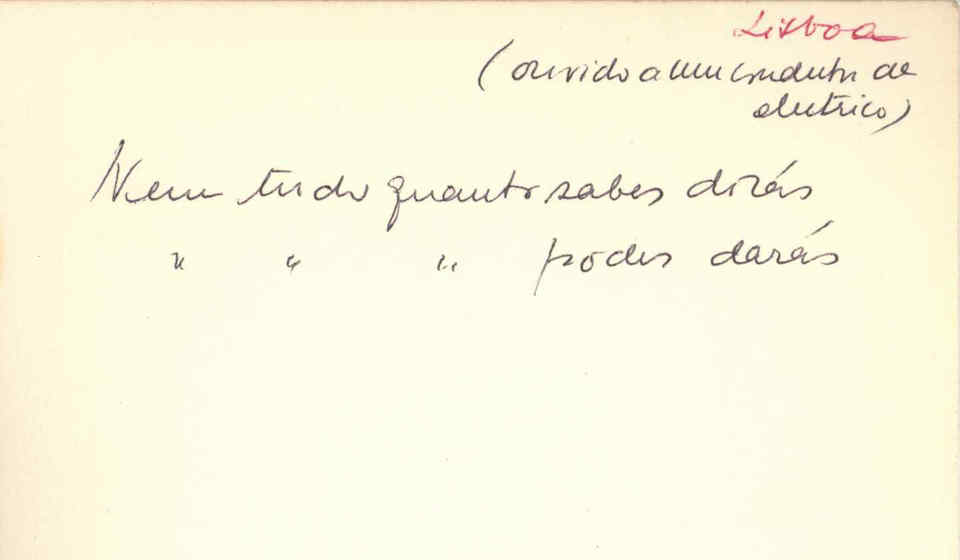 Lisboa
(ouvido a um condutor de
eletrico)
Nem tudo quanto sabes dirás
" " " podes darás